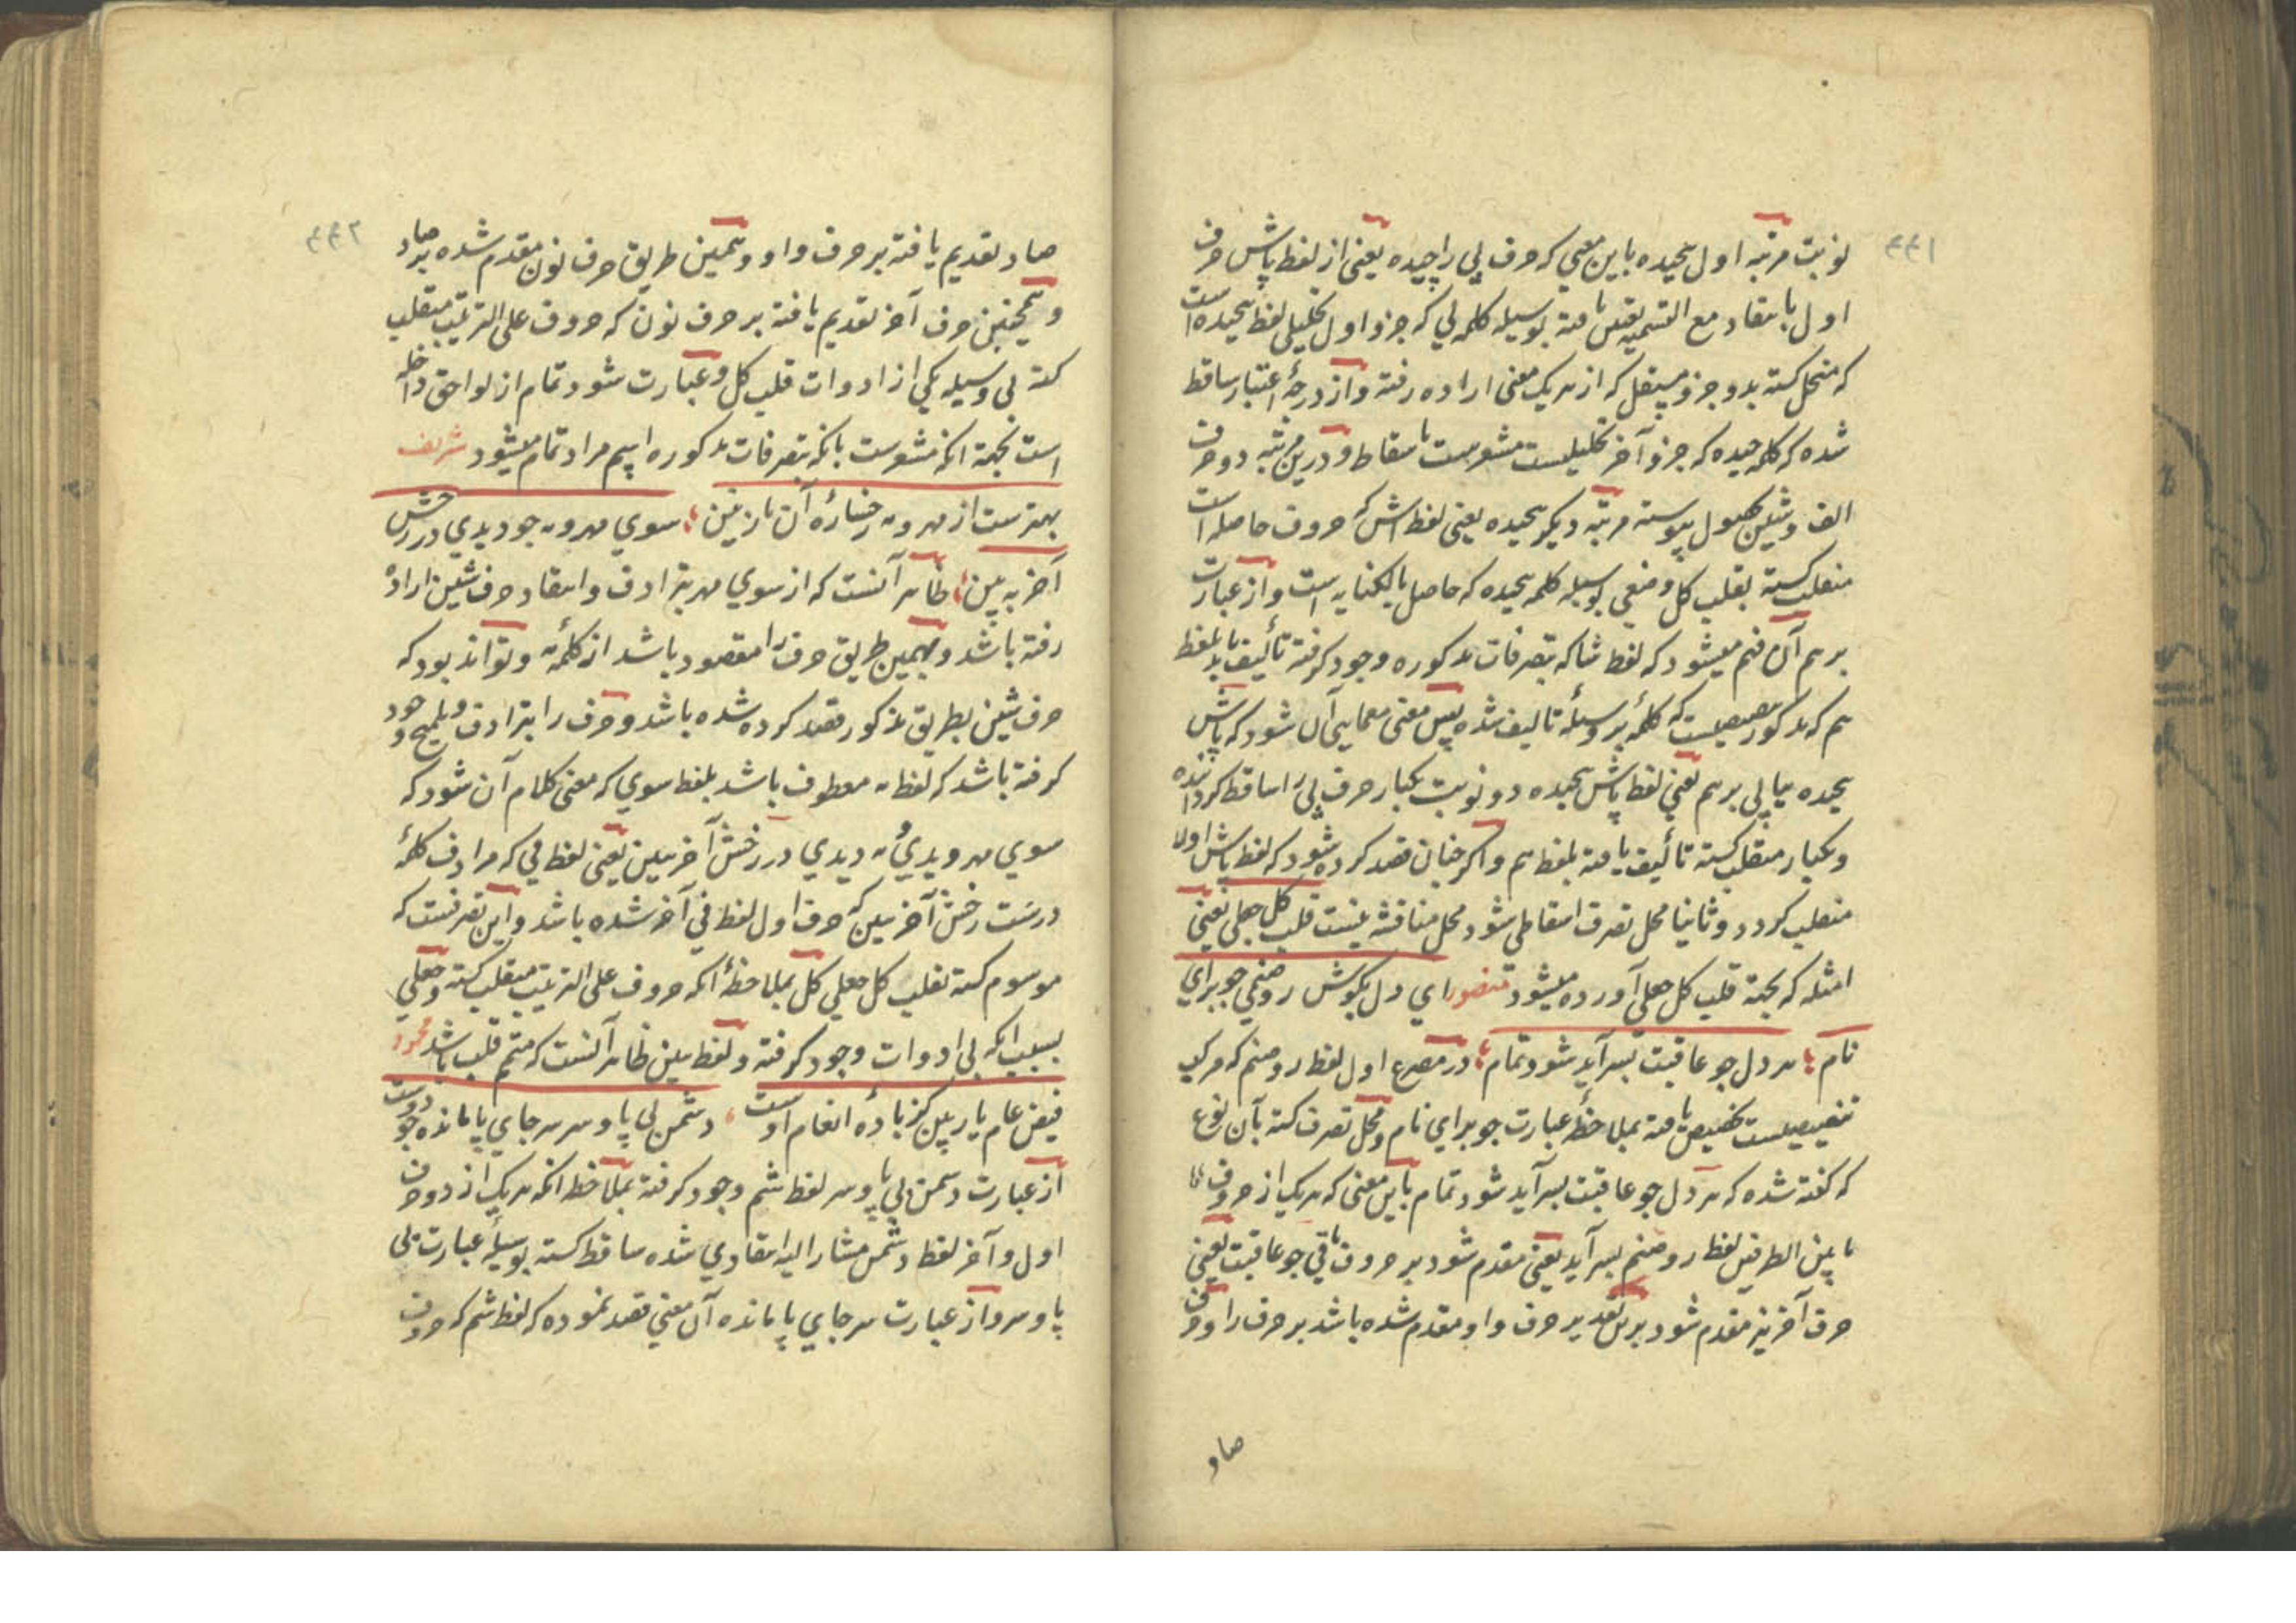 ۴۴۱
نوبت مرتبه اول پیچیده باین معنی که حرف پی را چیده یعنی از لفظ پاش حرف
اول بانتقاد مع التسمیه تعیین یافته بوسیله کلمه پی که جزو اول تحلیلی لفظ پیچیده است
که منحل گشته بدو جزو مستقل که از هر یک معنی اراده رفته و از درجهٔ اعتبار ساقط
شده که کلمه چیده که جزو آخر تحلیلیست مشعرست باسقاط و درین مرتبه دو حرف
الف و شین بحصول پیوسته مرتبه دیگر پیچیده یعنی لفظ اش که حروف حاصله است
منقلب گشته بقلب کل وضعی بوسیله کلمه پیچیده که حاصل بالکنایه است و از عبارت
بر هم آن فهم میشود که لفظ شا که بتصرفات مذکوره وجود گرفته تألیف یابد بلفظ
هم که مذکور تنصیصیست که کلمهٔ بر وسیلهٔ تالیف شده پس معنی معمایی آن شود که پاش
پیچده پیاپی بر هم یعنی لفظ پاش پیچیده دو نوبت یکبار حرف پی را ساقط گردانیده
و یکبار منقلب گشته تألیف یافته بلفظ هم و اگر چنان قصد کرده شود که لفظ پاش اولا
منقلب گردد و ثانیا محل تصرف اسقاطی شود محل مناقشه نیست قلب کل جعلی یعنی
امثله که بجهة قلب کل جعلی آورده میشود منصور ای دل بکوش رو صنمی جو برای
نام ؛ هر دل جو عاقبت بسر آید شود تمام ؛ در مصرع اول لفظ رو صنم که مرکب
تنصیصیست تخصیص یافته بملاحظهٔ عبارت جو برای نام و محل تصرف گشته بآن نوع
که گفته شده که هر دل جو عاقبت بسر آید شود تمام باین معنی که هر یک از حروف
ما بین الطرفین لفظ رو صنم بسر آید یعنی مقدم شود بر حروف باقی جو عاقبت یعنی
حرف آخر نیز مقدم شود برین تقدیر حرف واو مقدم شده باشد بر حرف را و حرف
صاد
۴۴۲
صاد تقدیم یافته بر حرف واو و بهمین طریق حرف نون مقدم شده بر صاد
و همچنین حرف آخر تقدیم یافته بر حرف نون که حروف علی الترتیب منقلب
گشته بی وسیله یکی از ادوات قلب کل و عبارت شود تمام از لواحق داخله
است بجهة آنکه مشعرست بانکه بتصرفات مذکوره اسم مراد تمام میشود شریف
بهترست از مهر و مه رخسارهٔ آن نازنین ؛ سوی مهر و مه جو دیدی در رخش
آخر ببین ؛ ظاهر آنست که از سوی مهر بترادف و انتقاد حرف شین اراده
رفته باشد و بهمین طریق حرف را مقصود باشد از کلمهٔ مه و تواند بود که
حرف شین بطریق مذکور قصد کرده شده باشد و حرف را بترادف و تلمیح وجود
گرفته باشد که لفظ مه معطوف باشد بلفظ سوی که معنی کلام آن شود که
سوی مهر و بدیٔ مه دیدی در رخش آخر ببین یعنی لفظ فی که مرادف کلمهٔ
درست رخش آخر ببین که حرف اول لفظ فی آخر شده باشد و این تصرفیست که
موسوم گشته بقلب کل جعلی کل بملاحظهٔ آنکه حروف علی الترتیب منقلب گشته و جعلی
بسبب آنکه بی ادوات وجود گرفته و لفظ ببین ظاهر آنست که متمم قلب باشد محمود
فیض عام یار بین کز بادهٔ انعام اوست ، دشمن بی پا و سر سر جای پا مانده جو دوست
از عبارت دشمن بی پا و سر لفظ شم وجود گرفته بملاحظه آنکه هر یک از دو حرف
اول و آخر لفظ دشمن مشار الیه انتقادی شده ساقط گشته بوسیلهٔ عبارت بی
پا و سر و از عبارت سر جای پا مانده آن معنی قصد نموده که لفظ شم که حروف